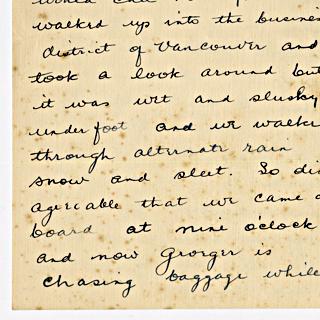 walked up into the busines
district of Vancouver and
took a look around but
it was wet and slushy
under foot and we walke
through alternate rain
snow and sleet. So dis
agreeable that we came a
board at nine o'clock
and now George is
chasing baggage while